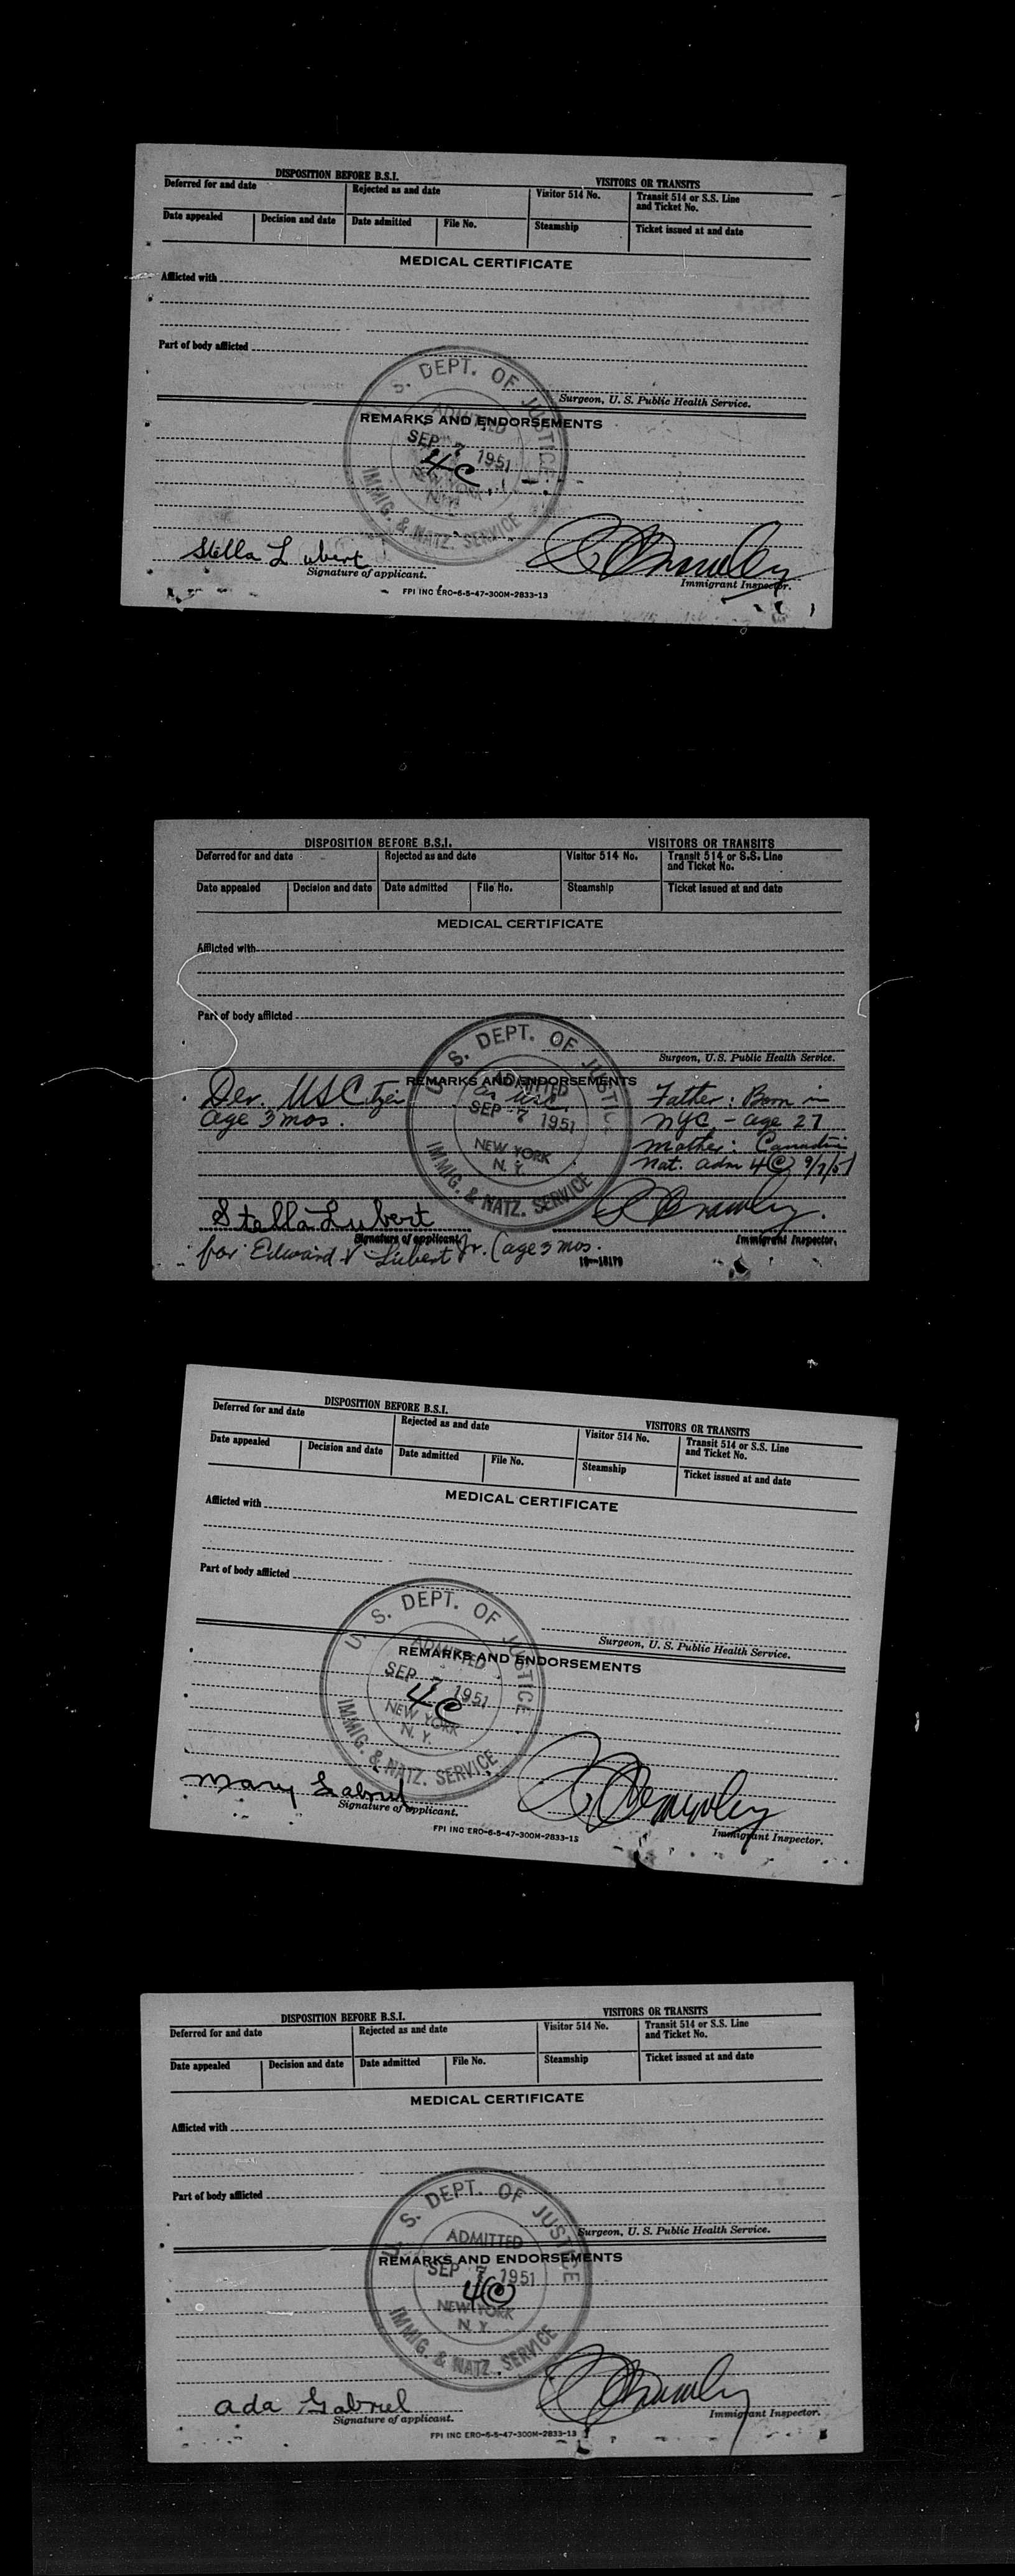 DISPOSITION BEFORE B.S.I. VISITORS OR TRANSITS
Deferred for and date Rejected as and date Visitor 514 No. Transit 514 or S.S. Line and Ticket No.
Date appealed Decision and date Date admitted File No. Steamship Ticket issued at and date
MEDICAL CERTIFICATE
Afflicted with
Part of body afflicted
Surgeon, U. S. Public Health Service.
REMARKS AND ENDORSEMENTS
S. DEPT. OF JUSTICE
ADMITTED
SEP 7 1951
4C
NEW YORK
N.Y.
IMMIG. & NATZ. SERVICE
Stella Lubert
Signature of applicant. Immigrant Inspector.
FPI INC ERO-6-5-47-300M-2833-13
DISPOSITION BEFORE B.S.I. VISITORS OR TRANSITS
Deferred for and date Rejected as and date Visitor 514 No. Transit 514 or S.S. Line and Ticket No.
Date appealed Decision and date Date admitted File No. Steamship Ticket issued at and date
MEDICAL CERTIFICATE
Afflicted with
Part of body afflicted
Surgeon, U. S. Public Health Service.
REMARKS AND ENDORSEMENTS
U. S. DEPT. OF JUSTICE
ADMITTED
as USC
SEP 7 1951
NEW YORK
N. Y.
IMMIG. & NATZ. SERVICE
Der. US Ctzen Father: Born in
age 3 mos. NYC - age 27
Mother: Canadian
Nat. adm 4(C) 9/7/51
Stella Lubert
Signature of applicant. Immigrant Inspector.
for Edward V Lubert Jr. (age 3 mos.
16-18179
DISPOSITION BEFORE B.S.I. VISITORS OR TRANSITS
Deferred for and date Rejected as and date Visitor 514 No. Transit 514 or S.S. Line and Ticket No.
Date appealed Decision and date Date admitted File No. Steamship Ticket issued at and date
MEDICAL CERTIFICATE
Afflicted with
Part of body afflicted
Surgeon, U. S. Public Health Service.
REMARKS AND ENDORSEMENTS
U. S. DEPT. OF JUSTICE
ADMITTED
SEP 7 1951
4C
NEW YORK
N. Y.
IMMIG. & NATZ. SERVICE
Mary Gabriel
Signature of applicant. Immigrant Inspector.
FPI INC ERO-6-5-47-300M-2833-13
DISPOSITION BEFORE B.S.I. VISITORS OR TRANSITS
Deferred for and date Rejected as and date Visitor 514 No. Transit 514 or S.S. Line and Ticket No.
Date appealed Decision and date Date admitted File No. Steamship Ticket issued at and date
MEDICAL CERTIFICATE
Afflicted with
Part of body afflicted
Surgeon, U. S. Public Health Service.
REMARKS AND ENDORSEMENTS
U. S. DEPT. OF JUSTICE
ADMITTED
SEP 7 1951
4(C)
NEW YORK
N. Y.
IMMIG. & NATZ. SERVICE
Ada Gabriel
Signature of applicant. Immigrant Inspector.
FPI INC ERO-6-5-47-300M-2833-13